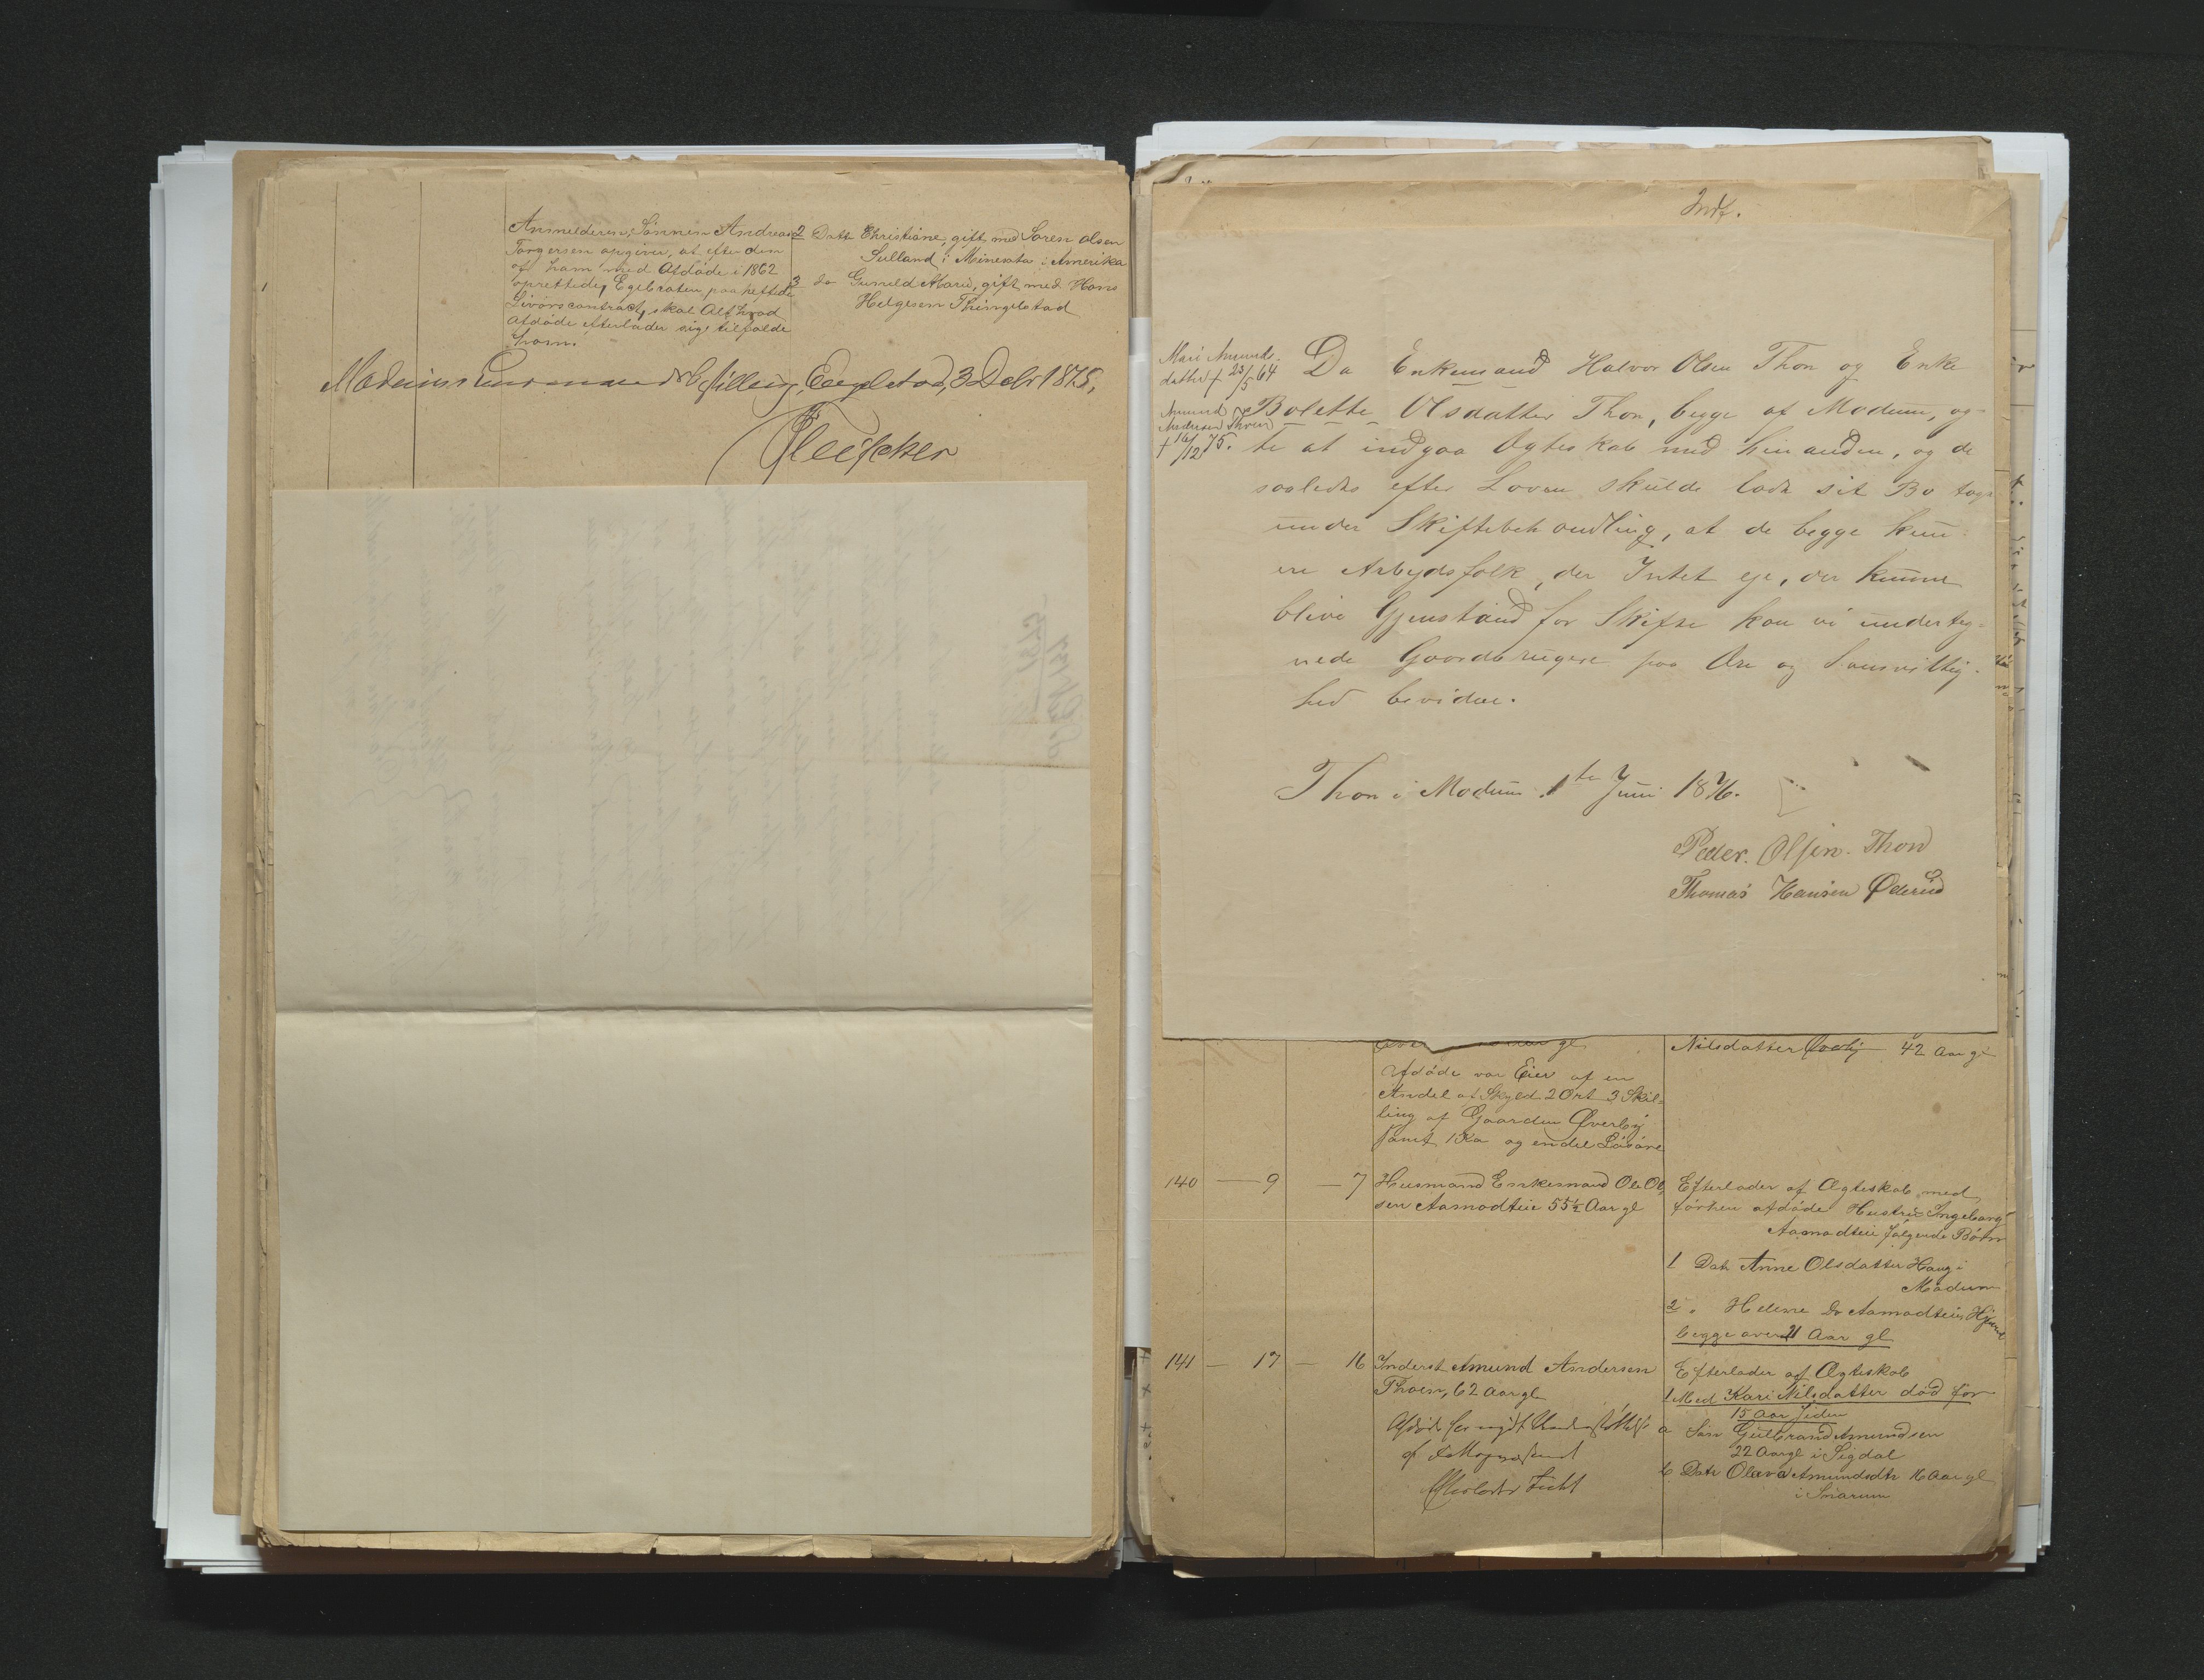 Anmelderen, Sönnen Andreas
Torgersen opgiver, at efter den
af ham med Afdöde i 1862
oprettede, Egebraten paaheftede
Livörscontract, skal Alt hvad
Afdöde efterlader sig tilfalde
ham.
2 Datt Christiane, gift med Sören Olsen
Sulland i Minesota i Amerika
3 do Gunild Marie, gift med Hans
Helgesen Thingelstad
Modums Lensmandsbestilling, 3 Debr 1875,
Indf.
Mari Amunds-
datter † 23/5 64
Amund
Andersen Thoen
† 16/12 75.
Da Enkemand Halvor Olsen Thon og Enke
Bolette Olsdatter Thon, begge af Modum, og-
te at indgaa Ægteskab med hinanden, og de
saaledes efter Loven skulde lade sit Bo tage
under Skiftebehandling, at de begge kun
ere Arbejdsfolk, der Intet eje, der kunne
blive Gjenstand for Skifte kan vi underteg-
nede Gaardbrugere paa Ære og Samvittig-
hed bevidne.
Thon i Modum 1te Juni 1876.
Peder. Olsen. Thon
Thomas Hansen Øderud
Nilsdatter Øverby 42 Aar gl
Afdöde var Eier af en
Andel af Skyld 2 Ort 3 Skil-
ling af Gaarden Øverby
samt 1 Ko og endel Lösöre
140 — 9 — 7 Husmand Enkemand Ole Ol-
sen Aamodteie 55½ Aar gl
Efterlader af Ægteskab med
forhen afdöde Hustru Ingeborg
Aamodteie fölgende Börn
1 Datr Anne Olsdatter Haug i
Modum
2 " Helene Do Aamodteie
begge over 21 Aar gl
141 — 17 — 16 Inderst Amund Andersen
Thoen, 62 Aar gl
Afdöde har nydt Understöttelse
af Fattigvæsenet
Efterlader Intet
Efterlader af Ægteskab
1 Med Kari Nilsdatter död for
15 Aar siden
a Sön Gulbrand Amundsen
22 Aar gl i Sigdal
b Datr Oleva Amundsdtr 16 Aar gl
i Snarum